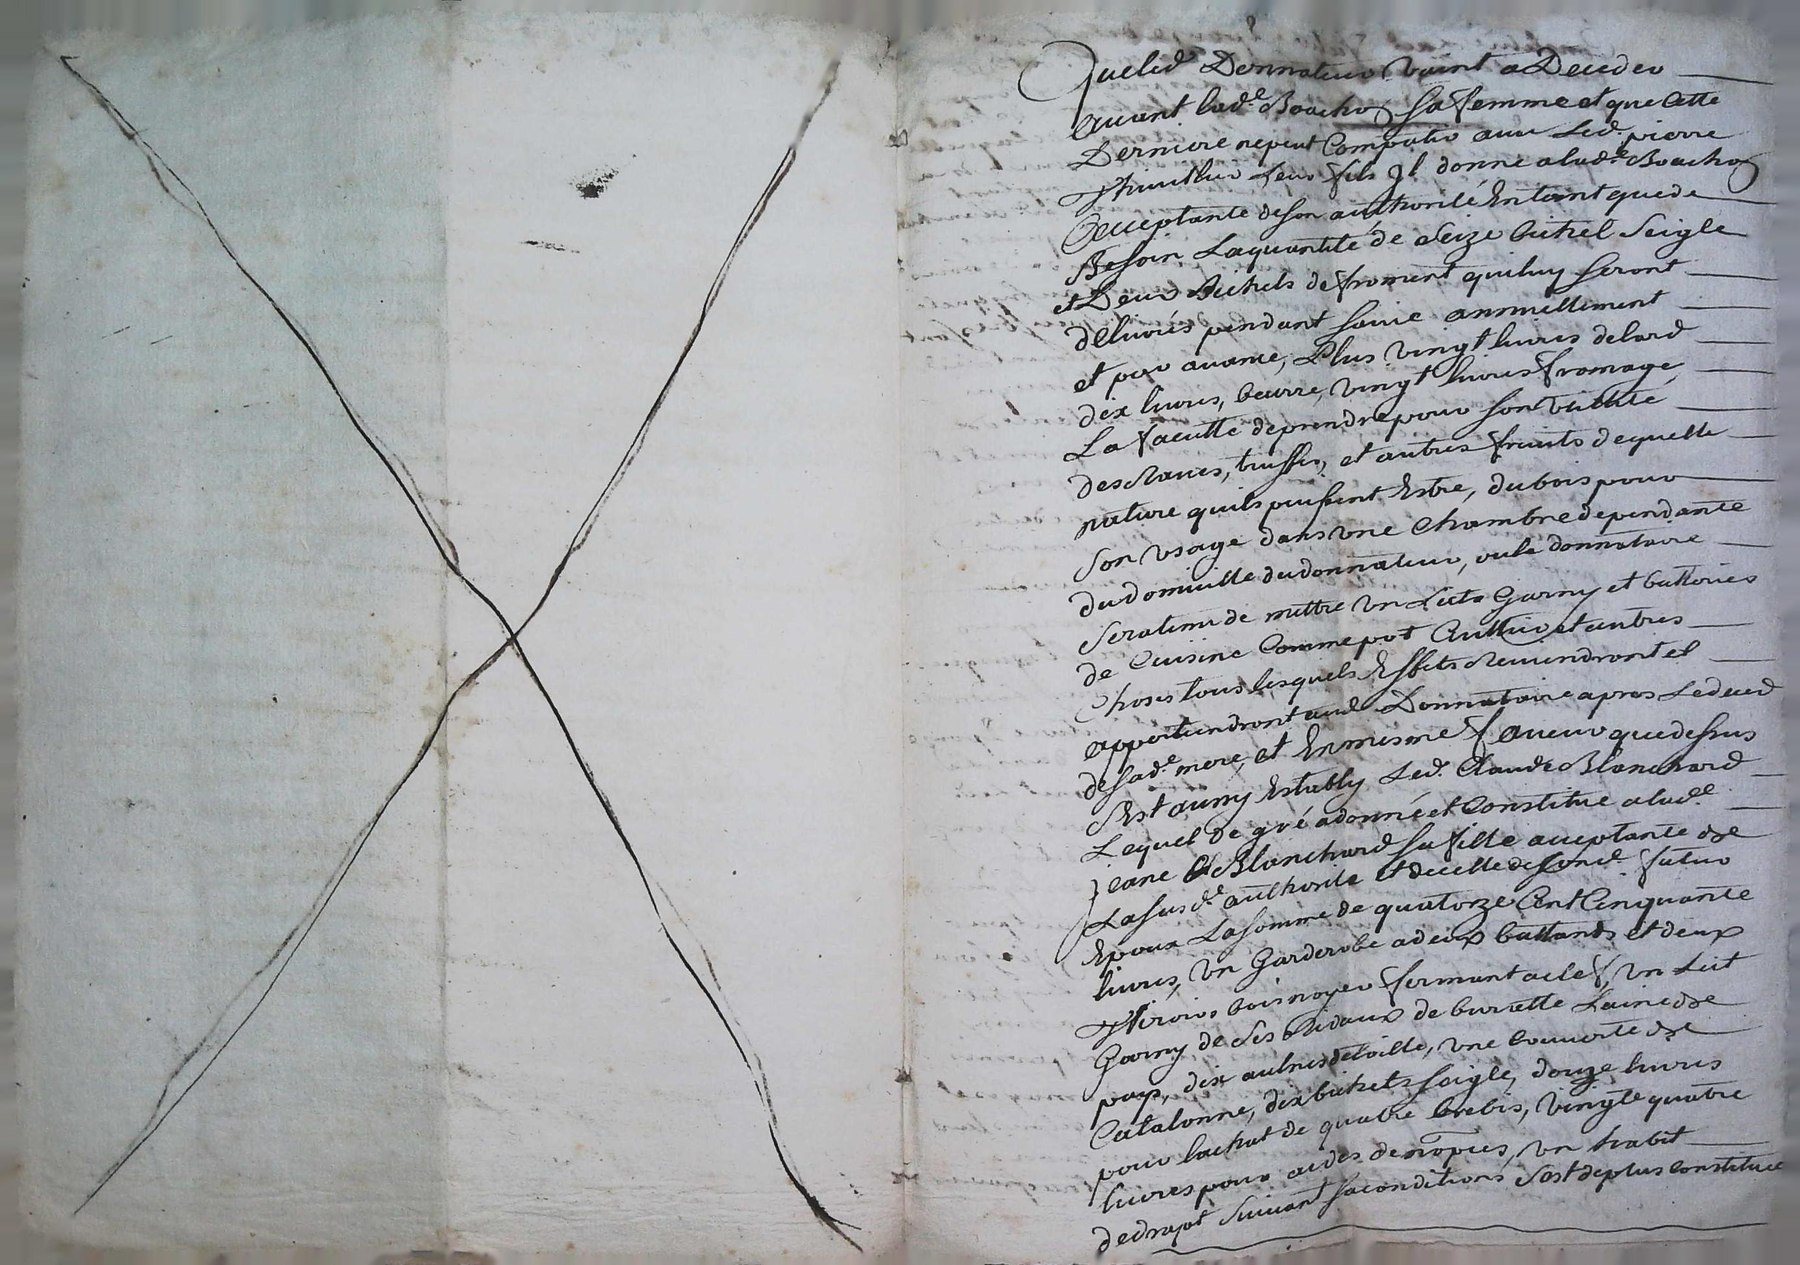 Queled. Donnateur vaint a Deceder
avant lad.e Boacho sa femme et que Cette
Derniere ne peut Compatir avec Led. pierre
leur fils Jl donne a lad.e Boacho
acceptante de son authorité En tant que de
Besoin La quantité de Seize bichet Seigle
et Deux Bichets de froment qui luy seront
délivrés pendant sa vie annuellement
et par avance, Plus vingt livres de lard
dix livres, beurre, vingt livres fromage,
La faculté de prendre pour son utillité
des Raves, truffes, et autres fruits de quelle
nature quils puissent Estre, du bois pour
Son usage dans une Chambre dependante
du domicille du donnateur, ou le donnataire
sera tenu de mettre un Lict Garny et batteries
de Cuisine Comme pot Cuillier et autres
Choses tous lesquels Effets Reviendront et
appartiendront aud. Donnataire apres Le deced
de sad.e mere, et En mesme faveur que dessus
s'Est aussy Estably Led. Claude Blanchard
Lequel de gré a donné et Constitue a lad.e
Jeane Blanchard sa fille acceptante de
La susd.e authorité et de celle de sond. futur
Epoux La somme de quatorze Cent Cinquante
livres, un Garderobe a deux battants et deux
tiroirs bois noyer fermant a clef, un Lict
Garny de Ses Rideaux de burratte Laine de
pays, dix aulnes de toille, une Couverte de
Catalonne, dix bichets seigle, douze livres
pour lachat de quatre brebis, vingt quatre
livres pour aides de nopces, un habit
de drapt suivant sa condition, s'est de plus constitue